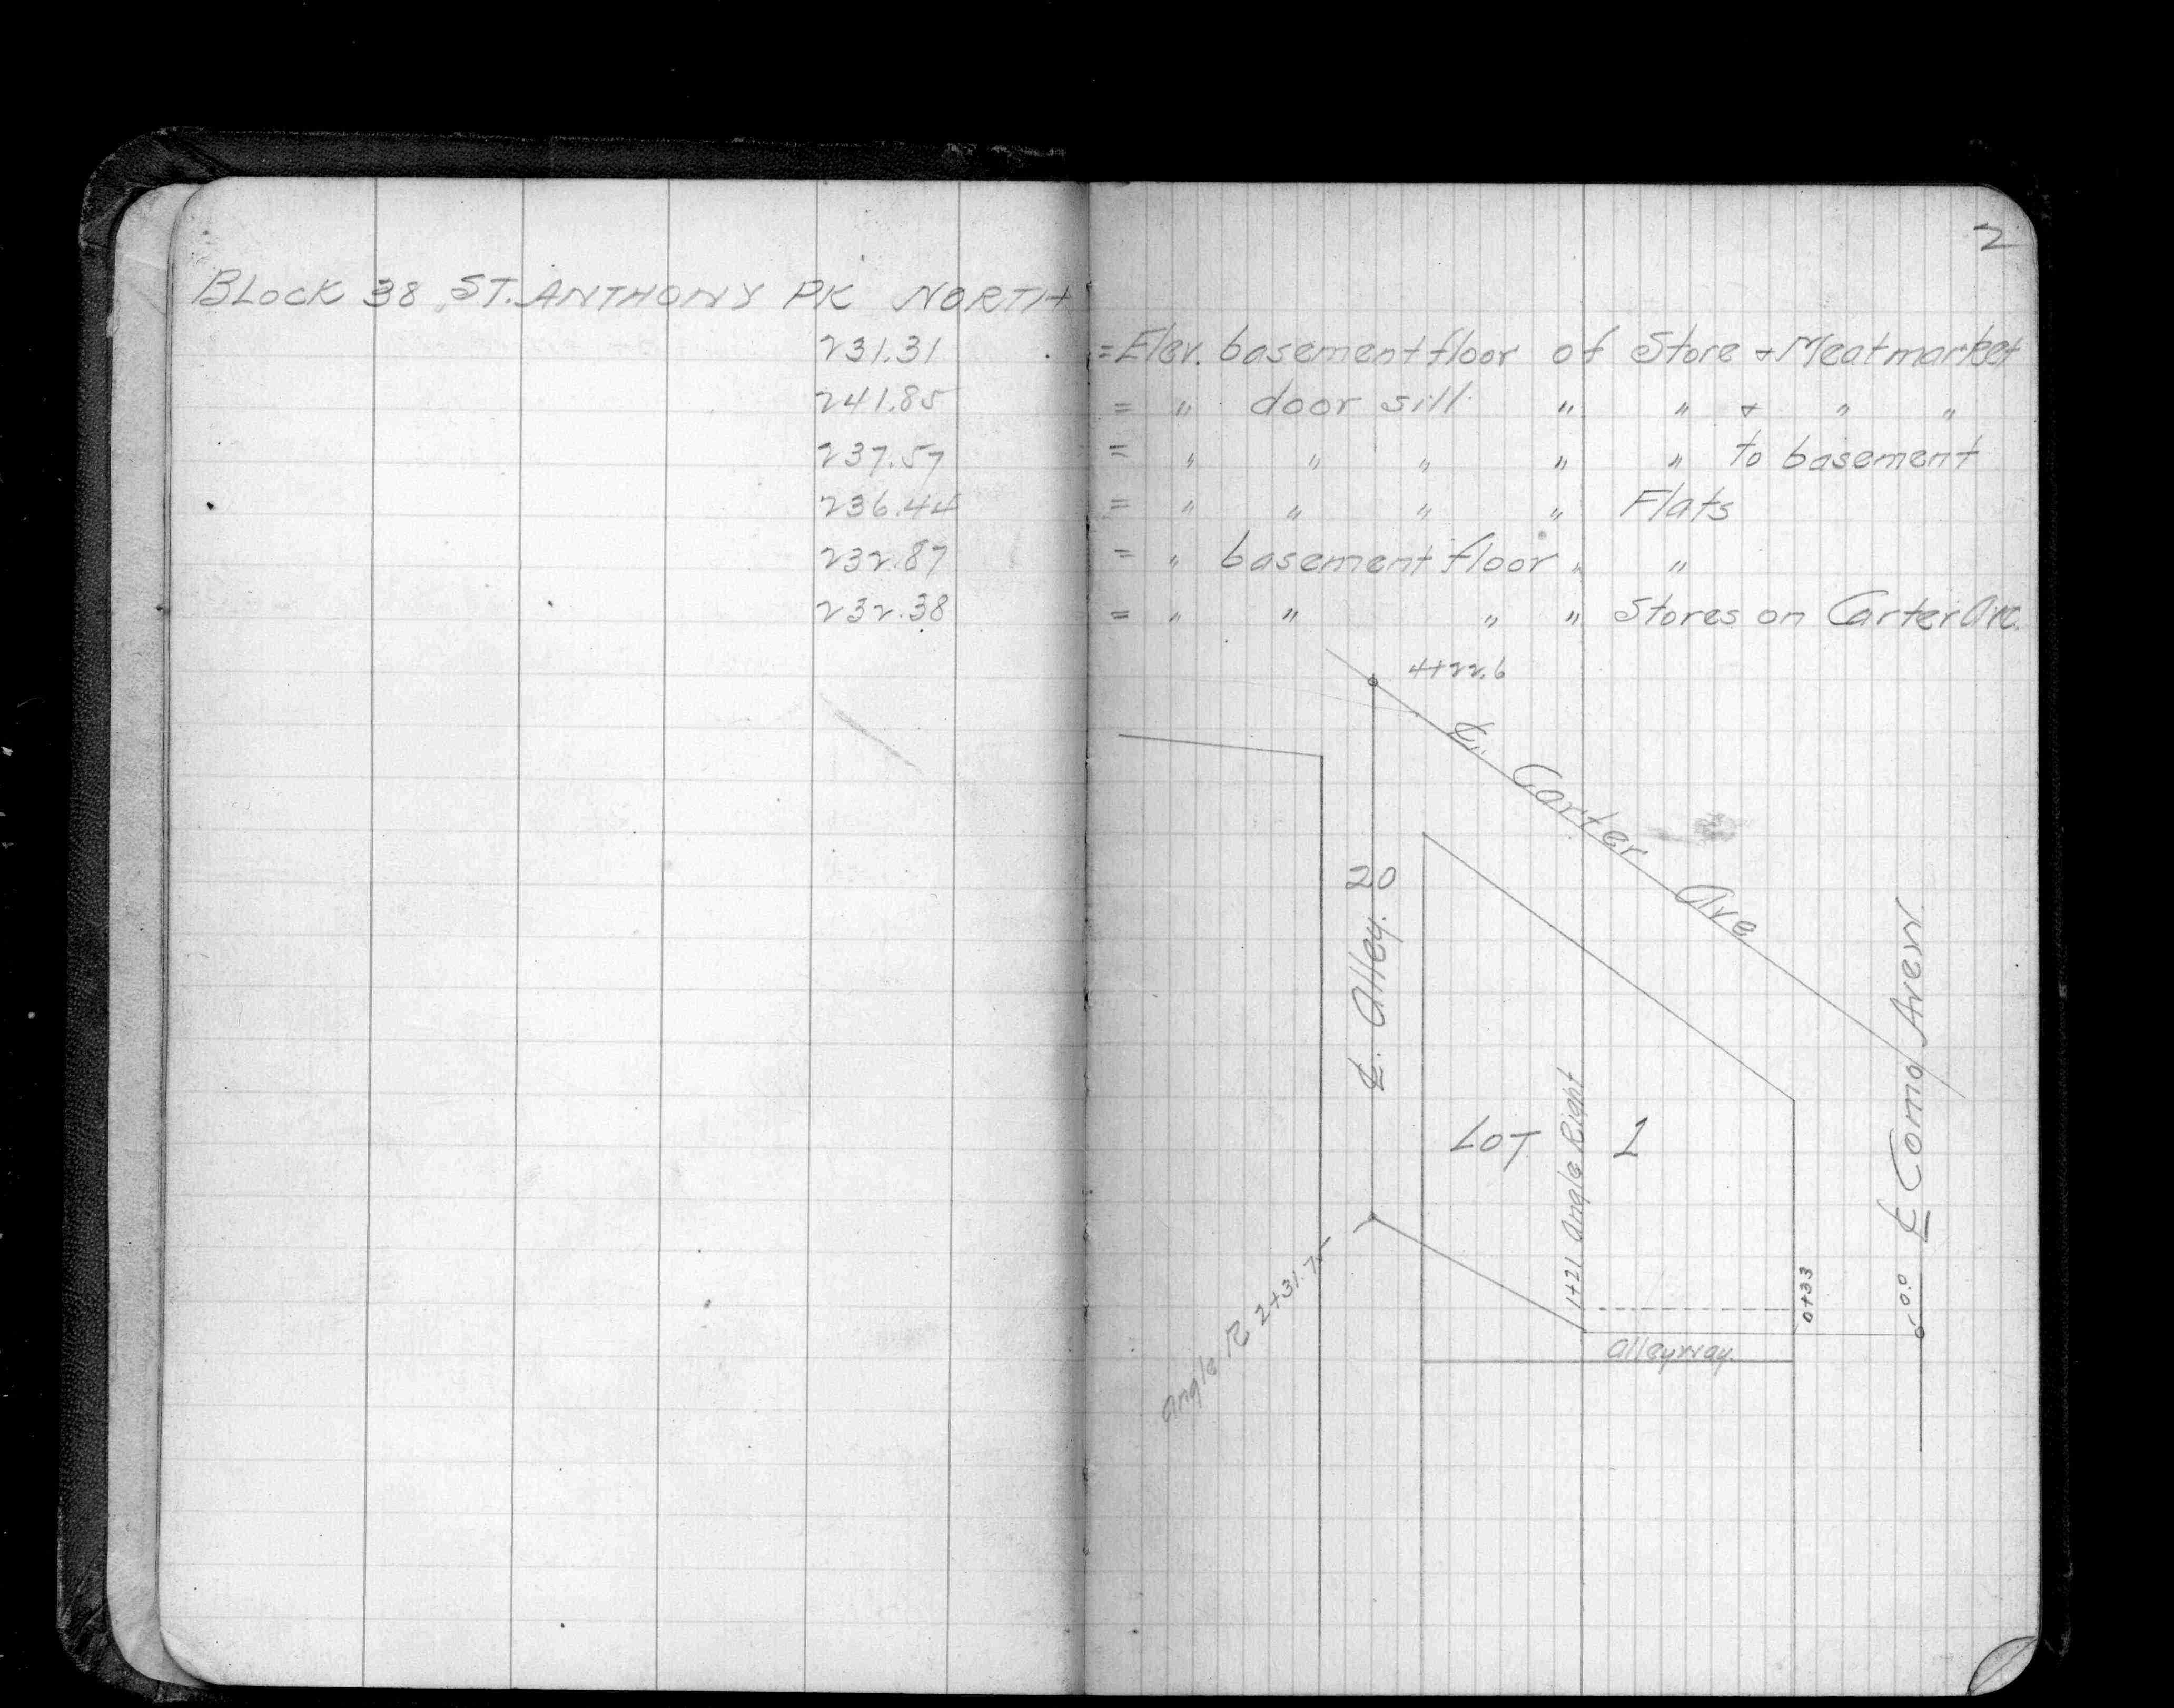 2
BLOCK 38 ST. ANTHONY PK NORTH
231.31 = Elev. basement floor of Store & Meat market
241.85 = " door sill " " & " "
237.57 = " " " " " to basement
236.44 = " " " " Flats
232.87 = " basement floor " "
232.38 = " " " " Stores on Carter Ave.
4+22.6
℄. Carter Ave
20
℄. Alley.
℄ Como Ave W.
LOT 1
1+21 Angle Right
Angle R 2+31.75
0+33
0.0
Alleyway.